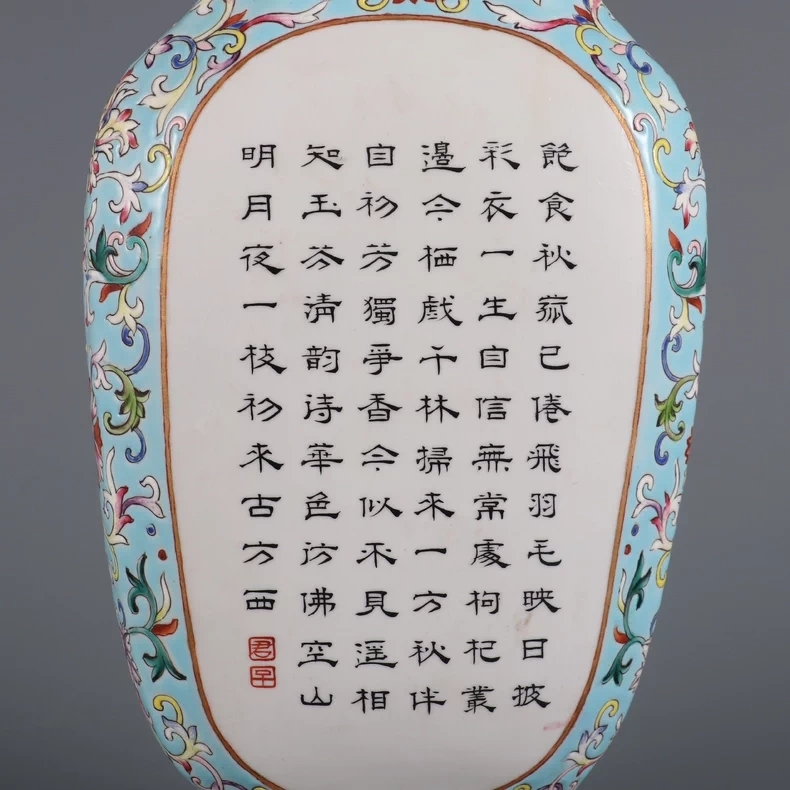 飽食秋菰已倦飛羽毛映日披
彩衣一生自信無常處枸杞叢
邉今栖戲千林掃来一方秋伴
自初芳獨爭香今似不見遥相
知玉芬清韵诗華色访佛空山
明月夜一枝初来古方西
君子